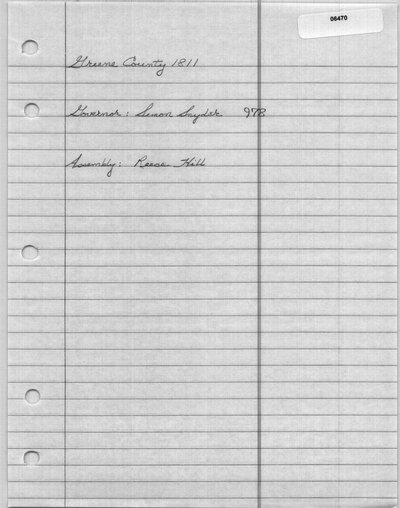 06470
Greene County 1811
Governor: Simon Snyder 978
Assembly: Reese Hill